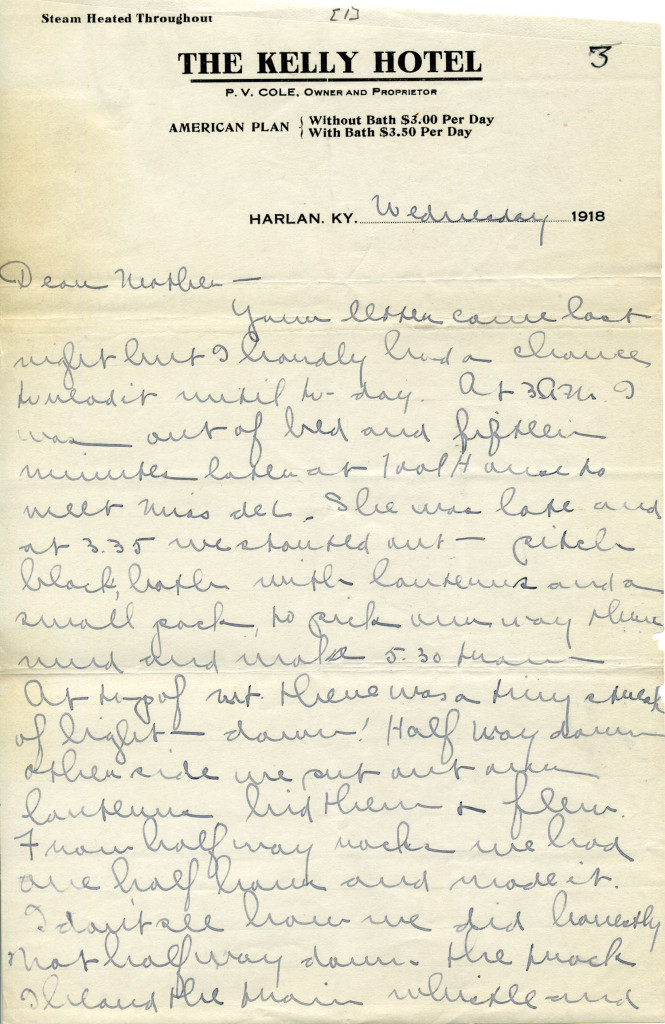 Steam Heated Throughout
[1]
3
THE KELLY HOTEL
P. V. COLE, OWNER AND PROPRIETOR
AMERICAN PLAN { Without Bath $3.00 Per Day
With Bath $3.50 Per Day
HARLAN. KY. Wednesday 1918
Dear Mother —
Your letter came last
night but I hardly had a chance
to read it until to-day. At 3 A.M. I
was out of bed and fifteen
minutes later at Tool House to
meet Miss deL. She was late and
at 3.35 we started out — pitch
black, both with lanterns and a
small pack, to pick our way thru
mud and make 5.30 train
At top of mt. there was a tiny streak
of light — dawn! Half way down
other side we put out our
lanterns hid them & flew.
From half way rocks we had
one half hour and made it.
I don't see how we did honestly
Not half way down the
I heard the train whistle and